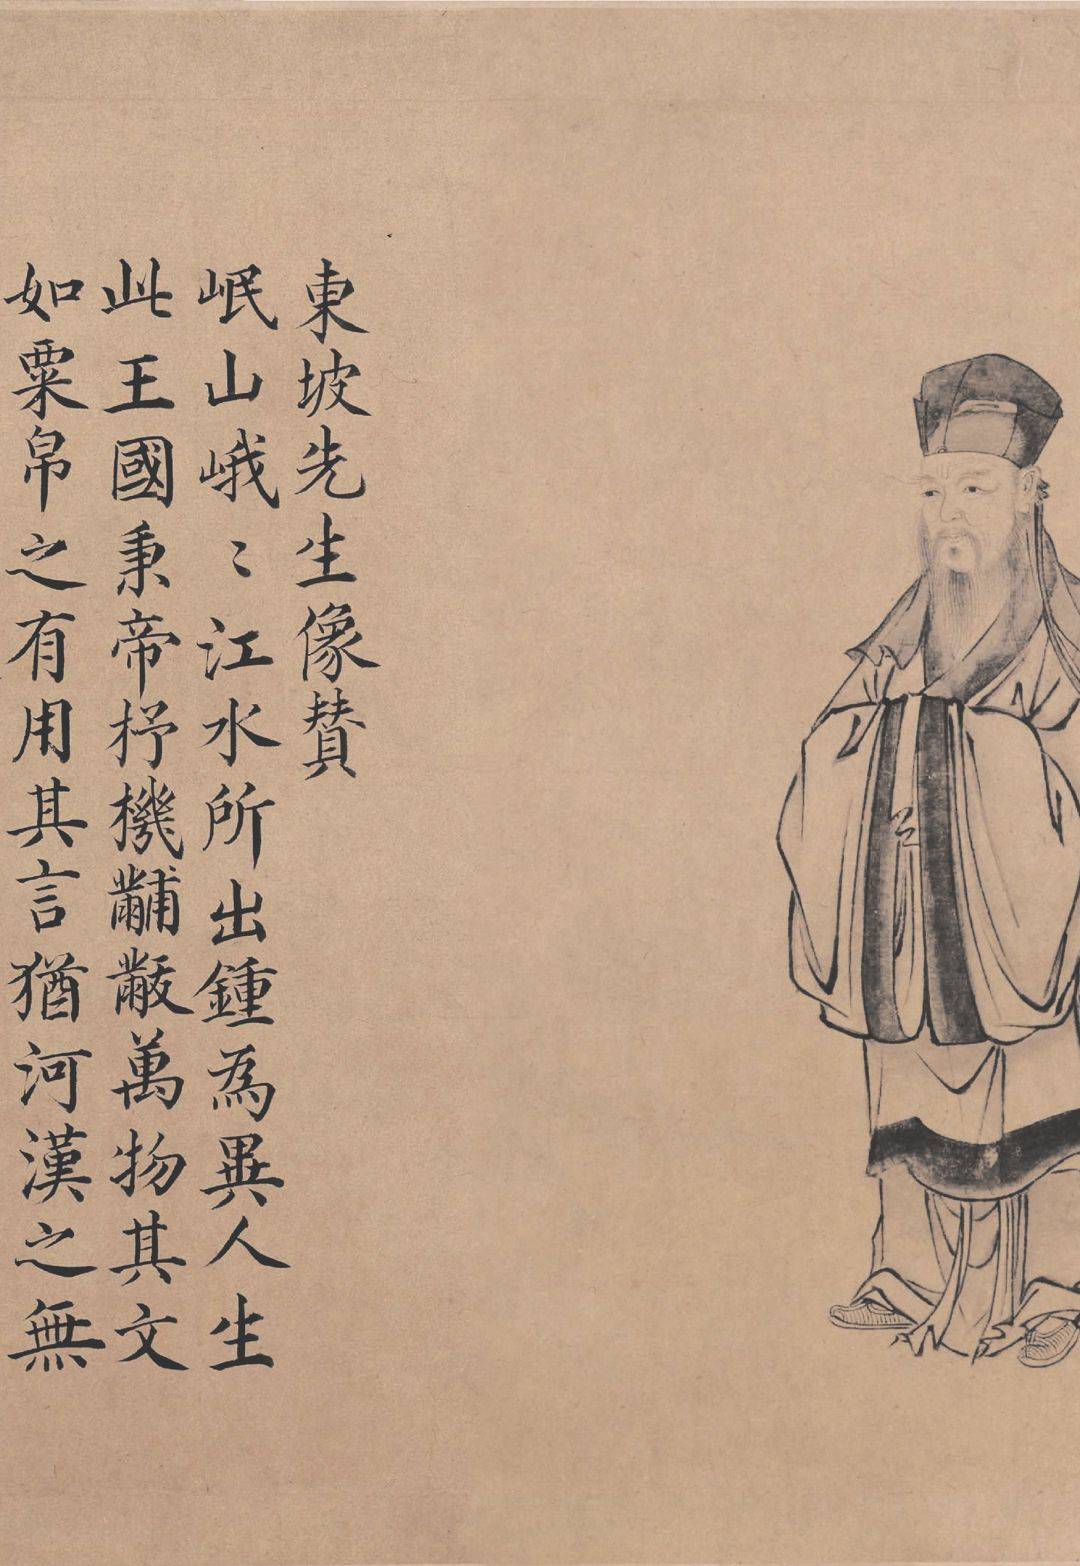 東坡先生像賛
岷山峨〻江水所出鍾為異人生
此王國秉帝杼機黼黻萬物其文
如粟帛之有用其言猶河漢之無